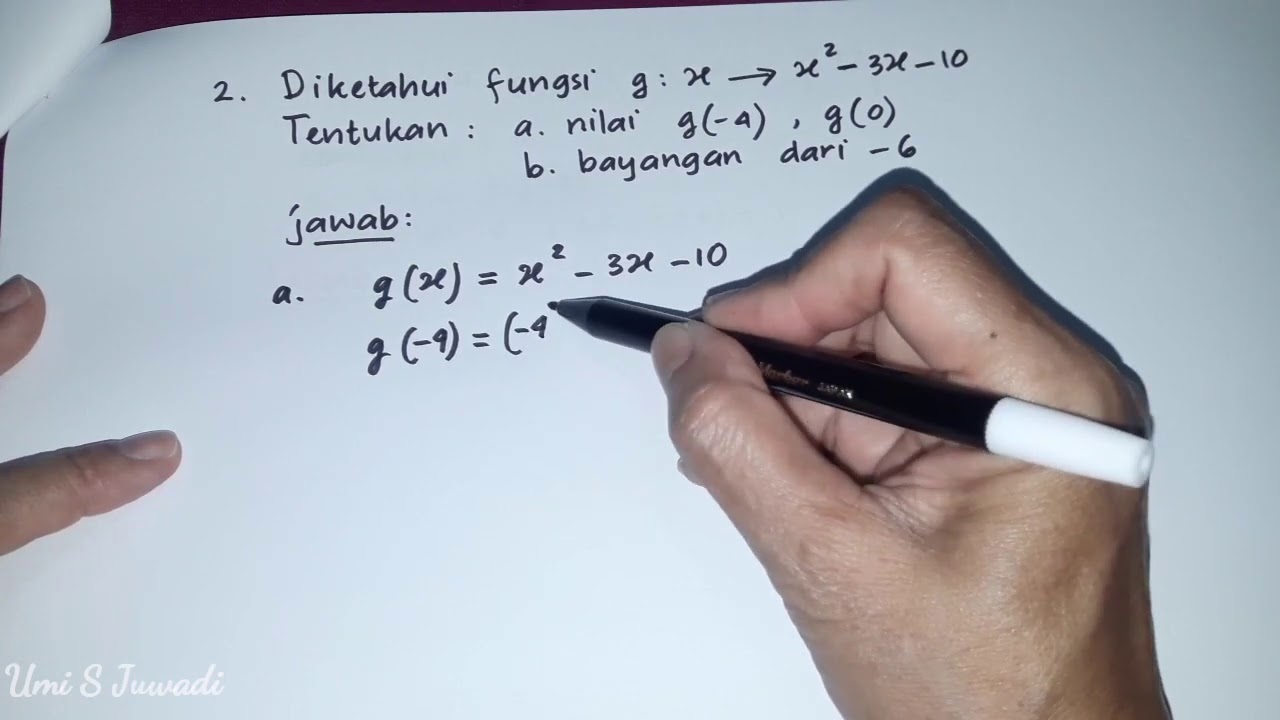 2. Diketahui fungsi g : x → x² - 3x - 10
Tentukan : a. nilai g(-4) , g(0)
b. bayangan dari - 6
jawab:
a. g(x) = x² - 3x - 10
g(-4) = (-4
Umi S Juwadi